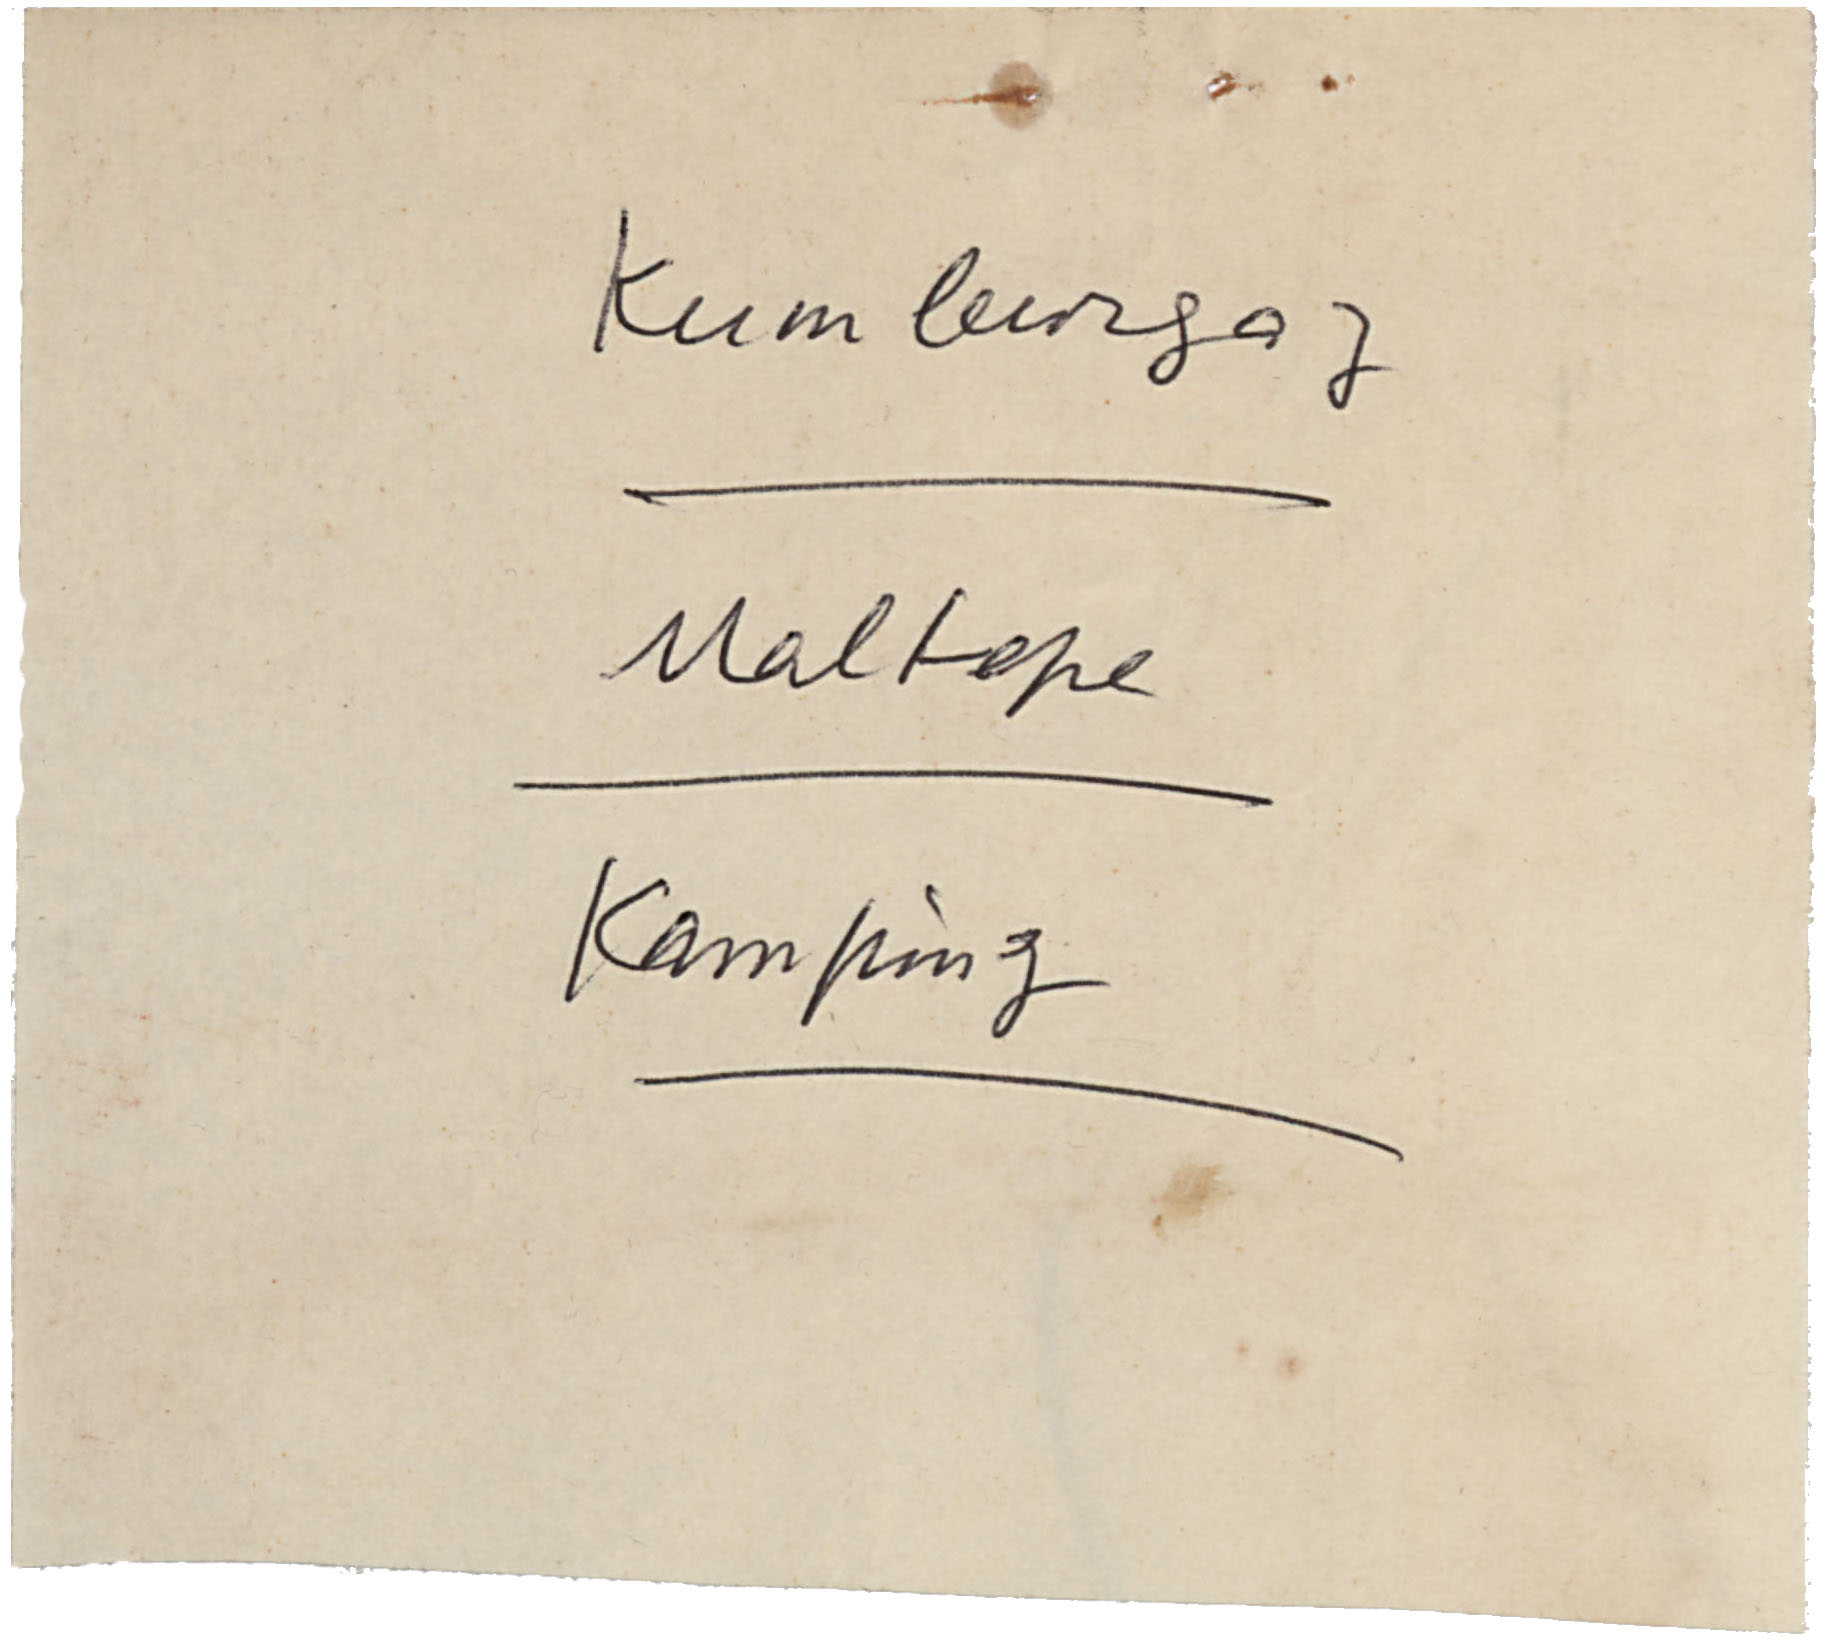 Kumburgaz
Maltepe
Kamping